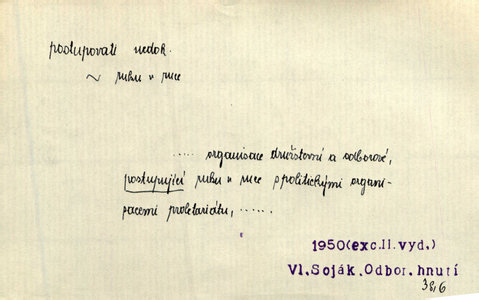 postupovati nedok.
~ ruku v ruce
..... organisace družstevní a odborové,
postupující ruku v ruce s politickými organi-
sacemi proletariátu, ......
1950(exc.II.vyd.)
Vl.Soják.Odbor.hnutí
38,6